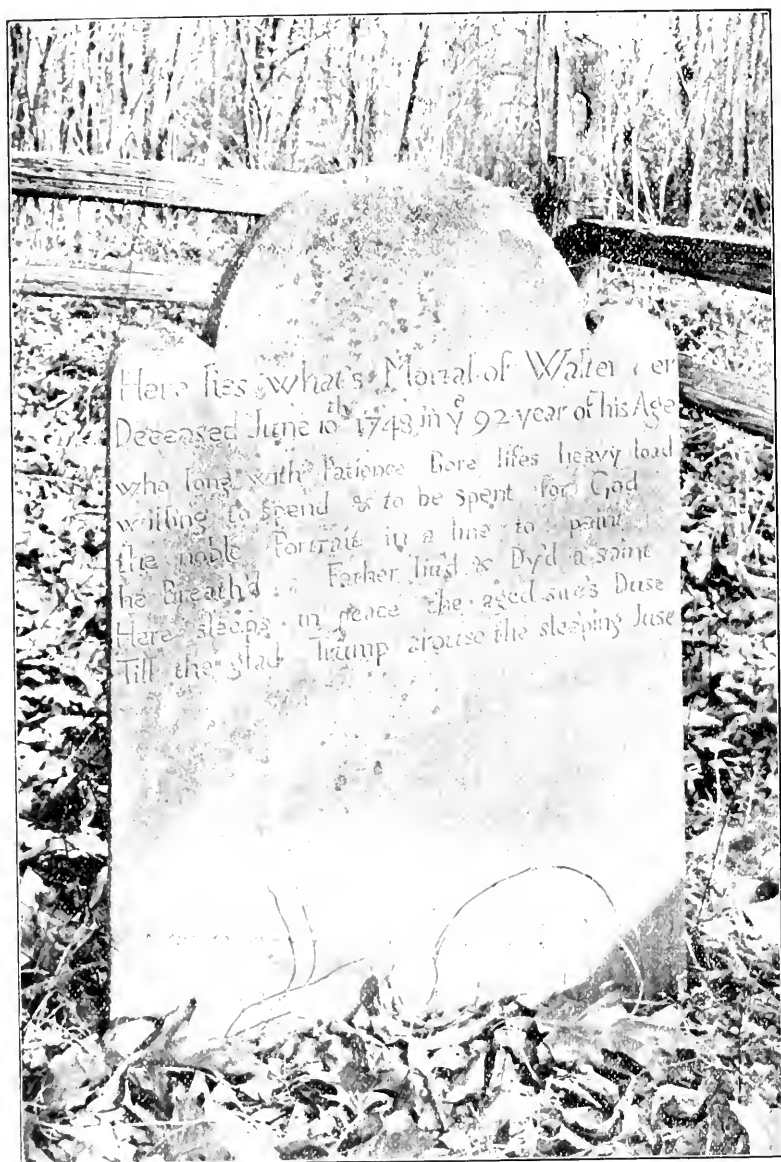 Here lies what's Mortal of Walter
Deceased June 10th 1748, in ye 92 year of his Age
who long with Patience Bore lifes heavy load
willing to spend & to be spent for God
the noble Portrait in a line to paint
he Breath'd a Father liv'd & Dy'd a saint
Here sleeps in peace the aged sire's Duse
Till the glad Trump arouse the sleeping Juse